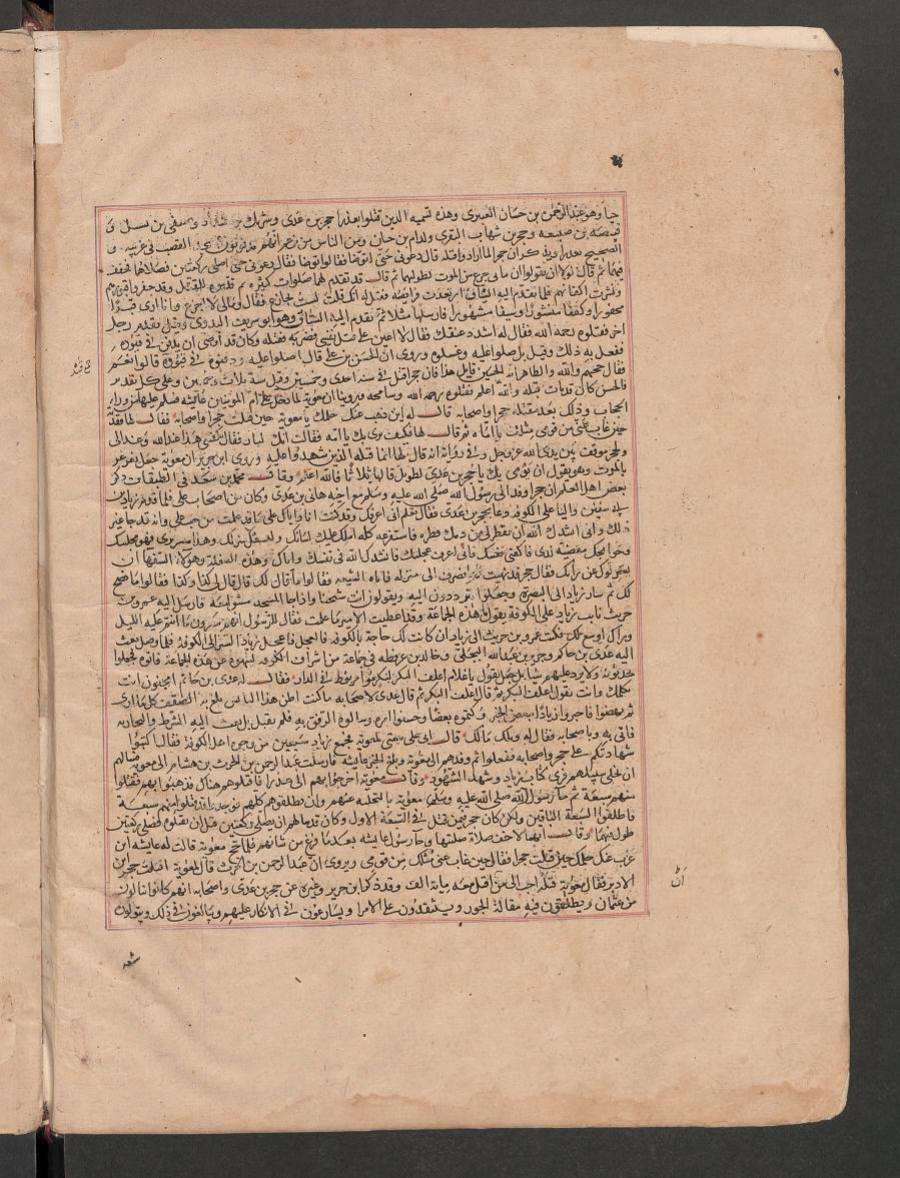 حيا وهو عبد الرحمن بن حسان العنزى وهذه تسمية الذين قتلوا بعذرا حجر بن عدى وشريك بن شداد وصيفى بن فسيل و
قبيصة بن ضبيعه ومحرز بن شهاب المنقرى وكدام بن حيان ومن الناس من يزعم انهم مدفونون بمسجد القصب فى عرينه و
الصحيح بعذرا ويذكر ان حجرا لما ارادوا قتله قال دعونى حتى اتوضا فقالوا توضا فقال دعونى حتى اصلى ركعتين فصلاهما فخفف
فيهما ثم قال لولا ان يقولوا ان ما بى جزع من الموت لطولتهما ثم قال قد تقدم لهما صلوات كثيره ثم قدموه للقتل وقد حفروا قبورهم
ونشرت اكفانهم فلما تقدم اليه السياف ارتعدت فرائصه فقيل له انك قلت لست بجازع فقال ومالى لا اجزع وانا ارى قبرا
محفورا وكفنا منشورا وسيفا مشهورا فارسلها مثلا ثم تقدم اليه السياف وهو ابو شريف البدوى وقيل تقدم رجل
اخر فقتلوه رحمه الله فقال له امدد عنقك فقال لا اعين على قتل نفسى فضربه فقتله وكان قد اوصى ان يدفن فى قيوده
ففعل به ذلك وقيل بل صلوا عليه وغسلوه وروى ان الحسن بن على قال اصلوا عليه ودفنوه فى قيوده قالوا نعم
فقال حجهم والله والظاهر ان الحسين قايل هذا فان حجرا قتل فى سنة احدى وخمسين وقيل سنة ثلاث وخمسين وعلى كل تقدير
فالحسن كان قد مات قبله والله اعلم فقتلوه رحمه الله وسامحه وروينا ان معوية لما دخل على ام المومنين عايشه فسلم عليها من وراء
الحجاب وذلك بعد مقتله حجرا واصحابه قالت له اين ذهب عنك حلمك يا معوية حين قتلت حجرا واصحابه فقال لها فقدته
حين غاب عنى من قومى مثلك يا اماه ثم قال لها فكيف برى بك يا امه فقالت انك لبار فقال يكفينى هذا عند الله وغدا لى
ولحجر موقف بين يدى الله عز وجل وفى رواية انه قال لها انما قتله الذين شهدوا عليه وروى ابن جرير ان معوية جعل يغرغر
بالموت وهو يقول ان يومى بك يا حجر بن عدى لطويل قالها ثلاثا فالله اعلم وقال محمد بن سعد فى الطبقات ذكر
بعض اهل العلم ان حجرا وفد الى رسول الله صلى الله عليه وسلم مع اخيه هانى بن عدى وكان من اصحاب على فلما قدم زياد بن
ابى سفين واليا على الكوفه دعا بحجر بن عدى فقال تعلم انى اعرفك وقد كنت انا واياك على ما قد علمت من حب على وانه قد جا غير
ذلك وانى انشدك الله ان تقطر لى من دمك قطره فاستفرغه كله املك عليك لسانك وليسعك منزلك وهذا سريرى فهو مجلسك
وحوايجك مقضيه لدى فاكفنى نفسك فانى اعرف عجلتك فانشدك الله فى نفسك واياك وهذه السفلة وهولاء السفها ان
يستزلوك عن رايك فقال حجر قد فهمت ثم انصرف الى منزله فاتاه الشيعه فقالوا ما قال لك قال قال لى كذا وكذا فقالوا ما نصح
لك ثم سار زياد الى البصرة وجعلوا يترددون اليه ويقولون انت شيخنا واذا جا المسجد مشوا معه فارسل اليه عمرو بن
حريث نايب زياد على الكوفة يقول ما هذه الجماعة وقد اعطيت الامير ما علمت فقال للرسول انهم ينكرون ما انتم عليه اليك
وراك اوسع لك فكتب عمرو بن حريث الى زياد ان كانت لك حاجة بالكوفه فالعجل فاعجل زياد السير الى الكوفة فلما وصل بعث
اليه عدى بن حاتم وجرير بن عبد الله البجلى وخالد بن عرفطه فى جماعة من اشراف الكوفه لينهوه عن هذه الجماعة فاتوه فجعلوا
يحدثونه ولا يرد عليهم شيا بل جعل يقول يا غلام اعلف البكر لبكر مربوط فى الدار فقال له عدى بن حاتم امجنون انت
نكلمك وانت تقول اعلف البكر ثم قال عدى لاصحابه ما كنت اظن هذا البائس بلغ به الضعف كل ما ارى
ثم نهضوا فاخبروا زيادا ببعض الخبر وكتموه بعضا وحسنوا امره وسالوه الرفق به فلم يقبل بل بعث اليه الشرط والبخارية
فاتى به وباصحابه فقال له ويلك مالك قال انى على بيعتى لمعوية فجمع زياد سبعين من وجوه اهل الكوفة فقال اكتبوا
شهادتكم على حجر واصحابه ففعلوا ثم وفدهم الى معوية وبلغ الخبر عايشه فارسلت عبد الرحمن بن الحرث بن هشام الى معوية يسالهم
ان يخلى سبيلهم فقرى كتاب زياد وشهد الشهود وقال معوية اخرجوا بهم الى عذرا فاقتلوهم هناك فذهبوا بهم فقتلوا
منهم سبعة ثم جا رسول معوية بالتخليه عنهم وان يطلقوهم كلهم فوجدوا قد قتلوا منهم سبعة
فاطلقوا السبعة الباقين ولكن كان حجر فيمن قتل فى السبعة الاول وكان قد سالهم ان يصلى ركعتين قبل ان يقتلوه فصلى ركعتين
طول فيهما وقال انهما لاخف صلاة صليتها وجا رسول عايشه بعد ما فرغ من شانهم فلما حج معوية قالت له عايشه اين
عزب عنك حلمك حين قتلت حجرا فقال حين غاب عنى مثلك من قومى ويروى ان عبد الرحمن بن الحرث قال لمعوية اقتلت حجر ابن
الادبر فقال معوية قتله احب الى من ان اقتل معه مائة الف وقد ذكر ابن جرير وغيره عن حجر بن عدى واصحابه انهم كانوا ينالون
من عثمان ويطلقون فيه مقالة الجور وينتقدون على الامرا ويسارعون فى الانكار عليهم ويبالغون فى ذلك ويتولون
شيعه